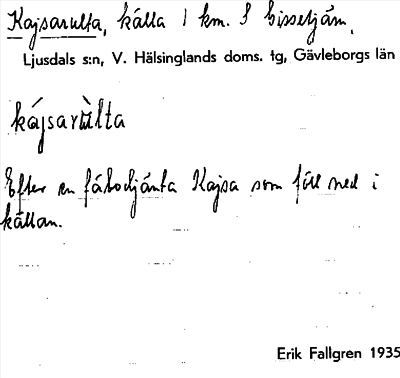 Kajsarulta, källa 1 km. S Bissetjärn,
Ljusdals s:n, V. Hälsinglands doms. tg, Gävleborgs län
kájsarùlta
Efter en fäbodjänta Kajsa som föll ned i
källan.
Erik Fallgren 1935